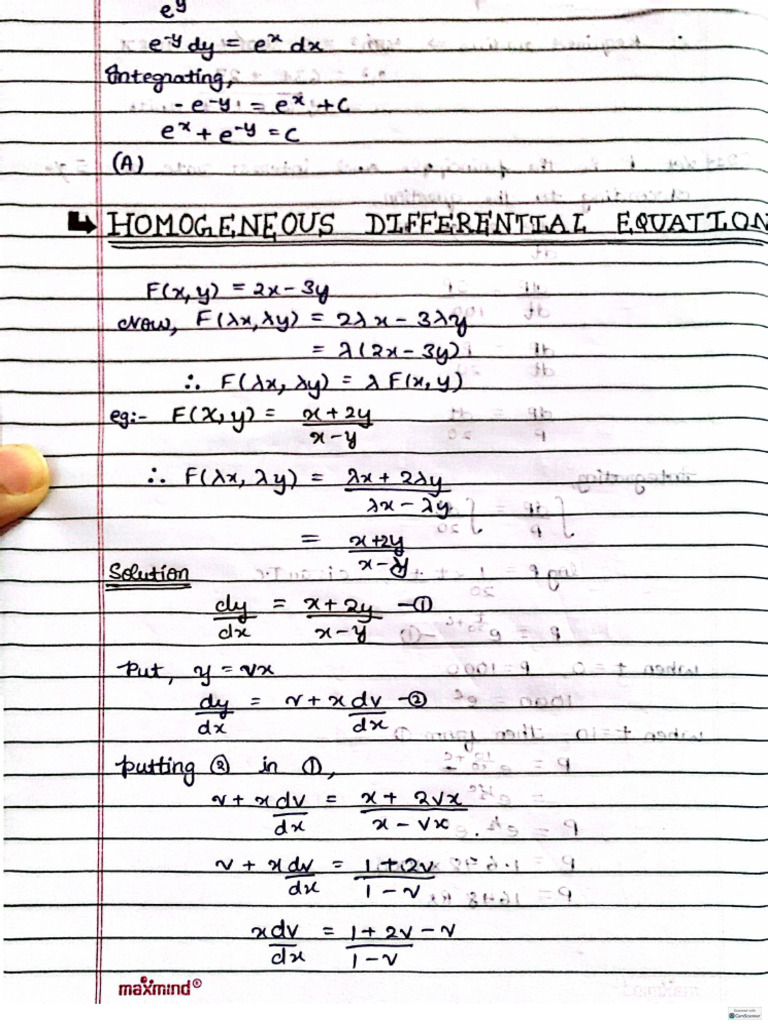 e^y
e^-y dy = e^x dx
Integrating,
- e^-y = e^x + C
e^x + e^-y = C
(A)
↳ HOMOGENEOUS DIFFERENTIAL EQUATION
F(x, y) = 2x - 3y
Now, F(λx, λy) = 2λx - 3λy
= λ(2x - 3y)
∴ F(λx, λy) = λ F(x, y)
eg:- F(X, y) = (x + 2y)/(x - y)
∴ F(λx, λy) = (λx + 2λy)/(λx - λy)
= (x + 2y)/(x - y)
Solution
dy/dx = (x + 2y)/(x - y) -①
Put, y = vx
dy/dx = v + x dv/dx -②
Putting ② in ①,
v + x dv/dx = (x + 2vx)/(x - vx)
v + x dv/dx = (1 + 2v)/(1 - v)
x dv/dx = (1 + 2v - v)/(1 - v)
maxmind®
Scanned with
CamScanner